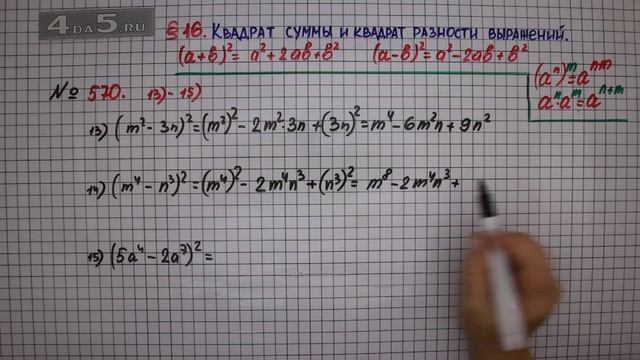 4DA5.RU
§ 16. Квадрат суммы и квадрат разности выражений.
(a+b)² = a² + 2ab + b² (a-b)² = a² - 2ab + b²
(aⁿ)ᵐ = aⁿᵐ
aⁿ·aᵐ = aⁿ⁺ᵐ
№ 570. 13)-15)
13) (m² - 3n)² = (m²)² - 2m²·3n + (3n)² = m⁴ - 6m²n + 9n²
14) (m⁴ - n³)² = (m⁴)² - 2m⁴n³ + (n³)² = m⁸ - 2m⁴n³ +
15) (5a⁴ - 2a⁷)² =